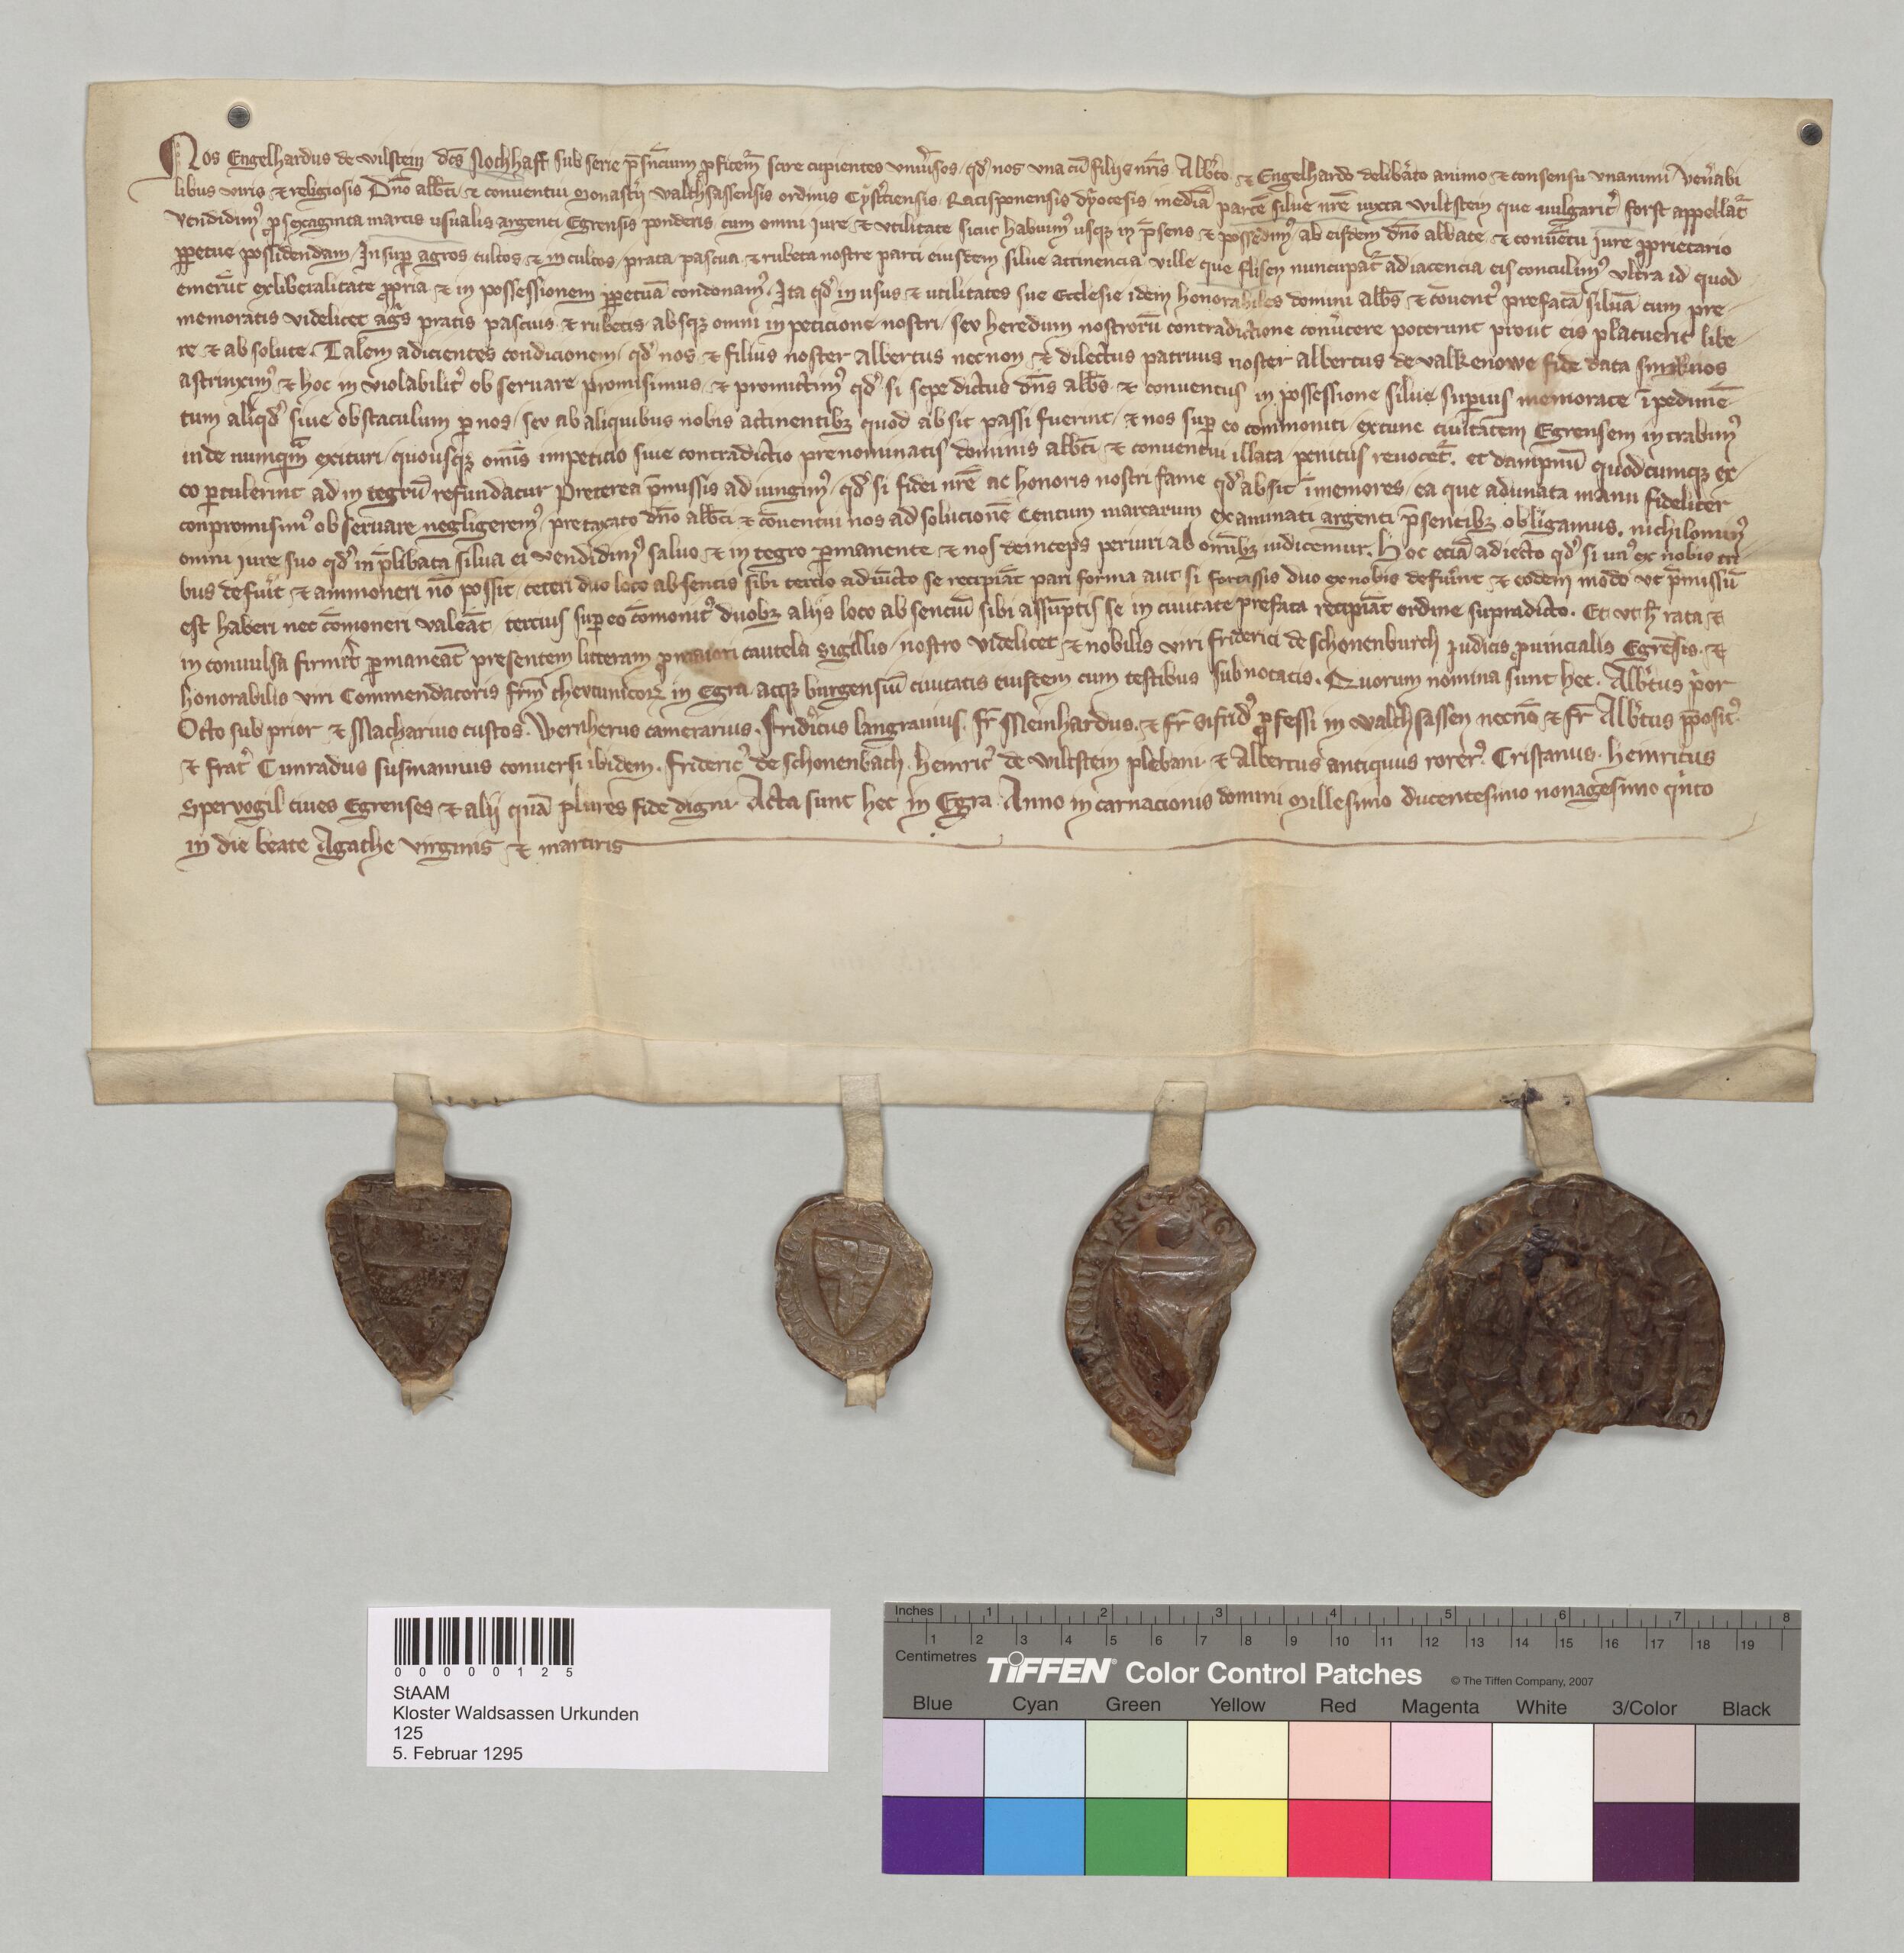 Nos Engelhardus de wilstein dc̄s Nochhaft sub serie p̄sn̄cium ꝓfitem̄ scire cupientes vniu̓sos qd̓ nos vna cū filijs nr̄is Alb̓to ⁊ Engelhardo delib̓ato animo ⁊ consensu vnanimi Ven̓abi
libus viris ⁊ religiosis Dn̄o abb̄ti ⁊ conuentui Monast̓ij walthsassensis ordinis Cyst̓ciensis Ratisponensis dyocesis mediā partē silue nr̄e iuxta wiltstein que uulgarit̓ forst appellat̄
vendidim̓ ꝓ sexaginta marcis usualis argenti Egrensis ponderis cum omni jure ⁊ vtilitate sicut habuim̓ usqꝫ in p̄sens ⁊ possedim̓ ab eisdem dn̄o abbate ⁊ conuētu jure ꝓprietario
ꝑpetue possidendam Insuꝑ agros cultos ⁊ incultos prata pascua ⁊ rubeta nostre parti eiusdem silue attinencia ville que flisen nuncupat̄ adiacencia eis contulim̓ vltra id quod
emerūt ex liberalitate ꝓpria ⁊ in possessionem ꝑpetuā condonam̓. Ita qd̓ in usus ⁊ utilitates sue Ecclesie idem honorabiles domini abb̄s ⁊ cōuent̓ prefatā siluā cum pre
memoratis videlicet ag̓s pratis pascuis ⁊ rubetis absqꝫ omni inpeticione nostri sev heredum nostrorū contradictione conu̓tere poterunt prout eis placuerit libe
re ⁊ absolute. Talem adicientes condicionem qd̓ nos ⁊ filius noster Albertus necnon ⁊ dilectus patruus noster Albertus de valkenowe fide data simul nos
astrinxim̓ ⁊ hoc inviolabilit̓ obseruare promisimus ⁊ promittim̓ qd̓ si sepedictus dn̄s abb̄s ⁊ conuentus in possessione silue suꝑius memorate īpedimē
tum aliqd̓ siue obstaculum ꝑ nos sev ab aliquibus nobis attinentibꝫ quod absit passi fuerint ⁊ nos suꝑ eo commoniti extunc ciuitatem Egrensem intrabim̓
inde numqm̄ exituri quousqꝫ omīs impeticio siue contradictio prenominatis dominis abb̄ti ⁊ conuentui illata penitus reuocet̄. et dampnū quodcumqꝫ ex
eo ꝑtulerint ad integrū refundatur Preterea p̄missis adiungim̓ qd̓ si fidei nr̄e ac honoris nostri fame qd̓ absit īmemores ea que adunata manu fideliter
conpromisim̓ obseruare negligerem̓ pretaxato dn̄o abb̄ti ⁊ cōuentui nos ad solucionē Centum marcarum examinati argenti p̄sentibꝫ obligamus. nichilomin̓
omni jure suo qd̓ in p̄libata silua ei vendidim̓ saluo ⁊ integro ꝑmanente ⁊ nos deinceps periuri ab omībꝫ iudicemur. Hoc eciā adiecto qd̓ si un̓ ex nobis tri
bus defu̓it ⁊ ammoneri nō possit ceteri duo loco absentis sibi tercio adiūcto se recipiāt pari forma aut si fortassis duo ex nobis defu̓int ⁊ eodem modo vt p̄missū
est haberi nec cōmoneri valeāt tercius suꝑ eo cōmonit̓ duobꝫ alijs loco absentiū sibi assūptis se in ciuitate prefata recipiāt ordine supradicto. Et vt h̄ rata ⁊
inconuulsa firmit̓ ꝑmaneāt presentem litteram ꝓ maiori cautela sigillis nostro videlicet ⁊ nobilis viri friderici de schonenburch judicis ꝓuincialis Egrēsis. ⁊
honorabilis viri Commendatoris frm̄ thevtunicoꝝ in Egra atqꝫ burgensiū ciuitatis eiusdem cum testibus subnotatis. Quorum nomina sunt hec. Alb̓tus p̓or
Octo subprior ⁊ Macharius custos. Wernherus camerarius. fridic̓us langrauius. fr̄ Meinhardus. ⁊ fr̄ Sifrid̓ ꝓfessi in walthsassen necnō ⁊ fr̄ Alb̓tus p̄posit̓.
⁊ frat̓ Cunradus susmannus conuersi ibidem. frideric̓ de schonenbach. heinric̓ de wiltstein plebani ⁊ Albertus antiquus rorer̓. Cristanus. heinricus
spervogil ciues Egrenses ⁊ alij quā plures fide digni. Acta sunt hec in Egra. Anno incarnacionis domini Millesimo ducentesimo nonagesimo q̓nto
in die beate Agathe virginis ⁊ martiris
0 0 0 0 0 1 2 5
StAAM
Kloster Waldsassen Urkunden
125
5. Februar 1295
Inches 1 2 3 4 5 6 7 8
1 2 3 4 5 6 7 8 9 10 11 12 13 14 15 16 17 18 19
Centimetres
TIFFEN® Color Control Patches © The Tiffen Company, 2007
Blue Cyan Green Yellow Red Magenta White 3/Color Black